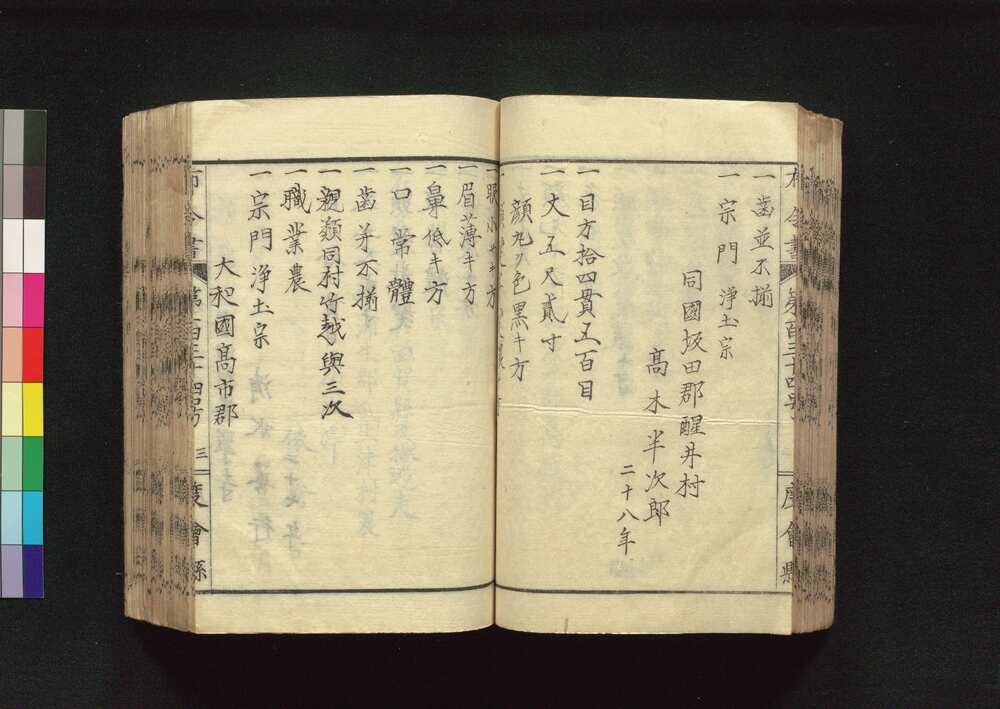 一齒並不揃
一宗門 淨土宗
同國坂田郡醒井村
高木半次郎
二十八年
一目方拾四貫五百目
一丈五尺貳寸
顔丸ク色黒キ方
一眼小サキ方
一眉薄キ方
一鼻低キ方
一口常體
一齒並不揃
一親類同村竹越與三次
一職業農
一宗門 淨土宗
大和國高市郡
布令書 第百三十四号 三 度會縣